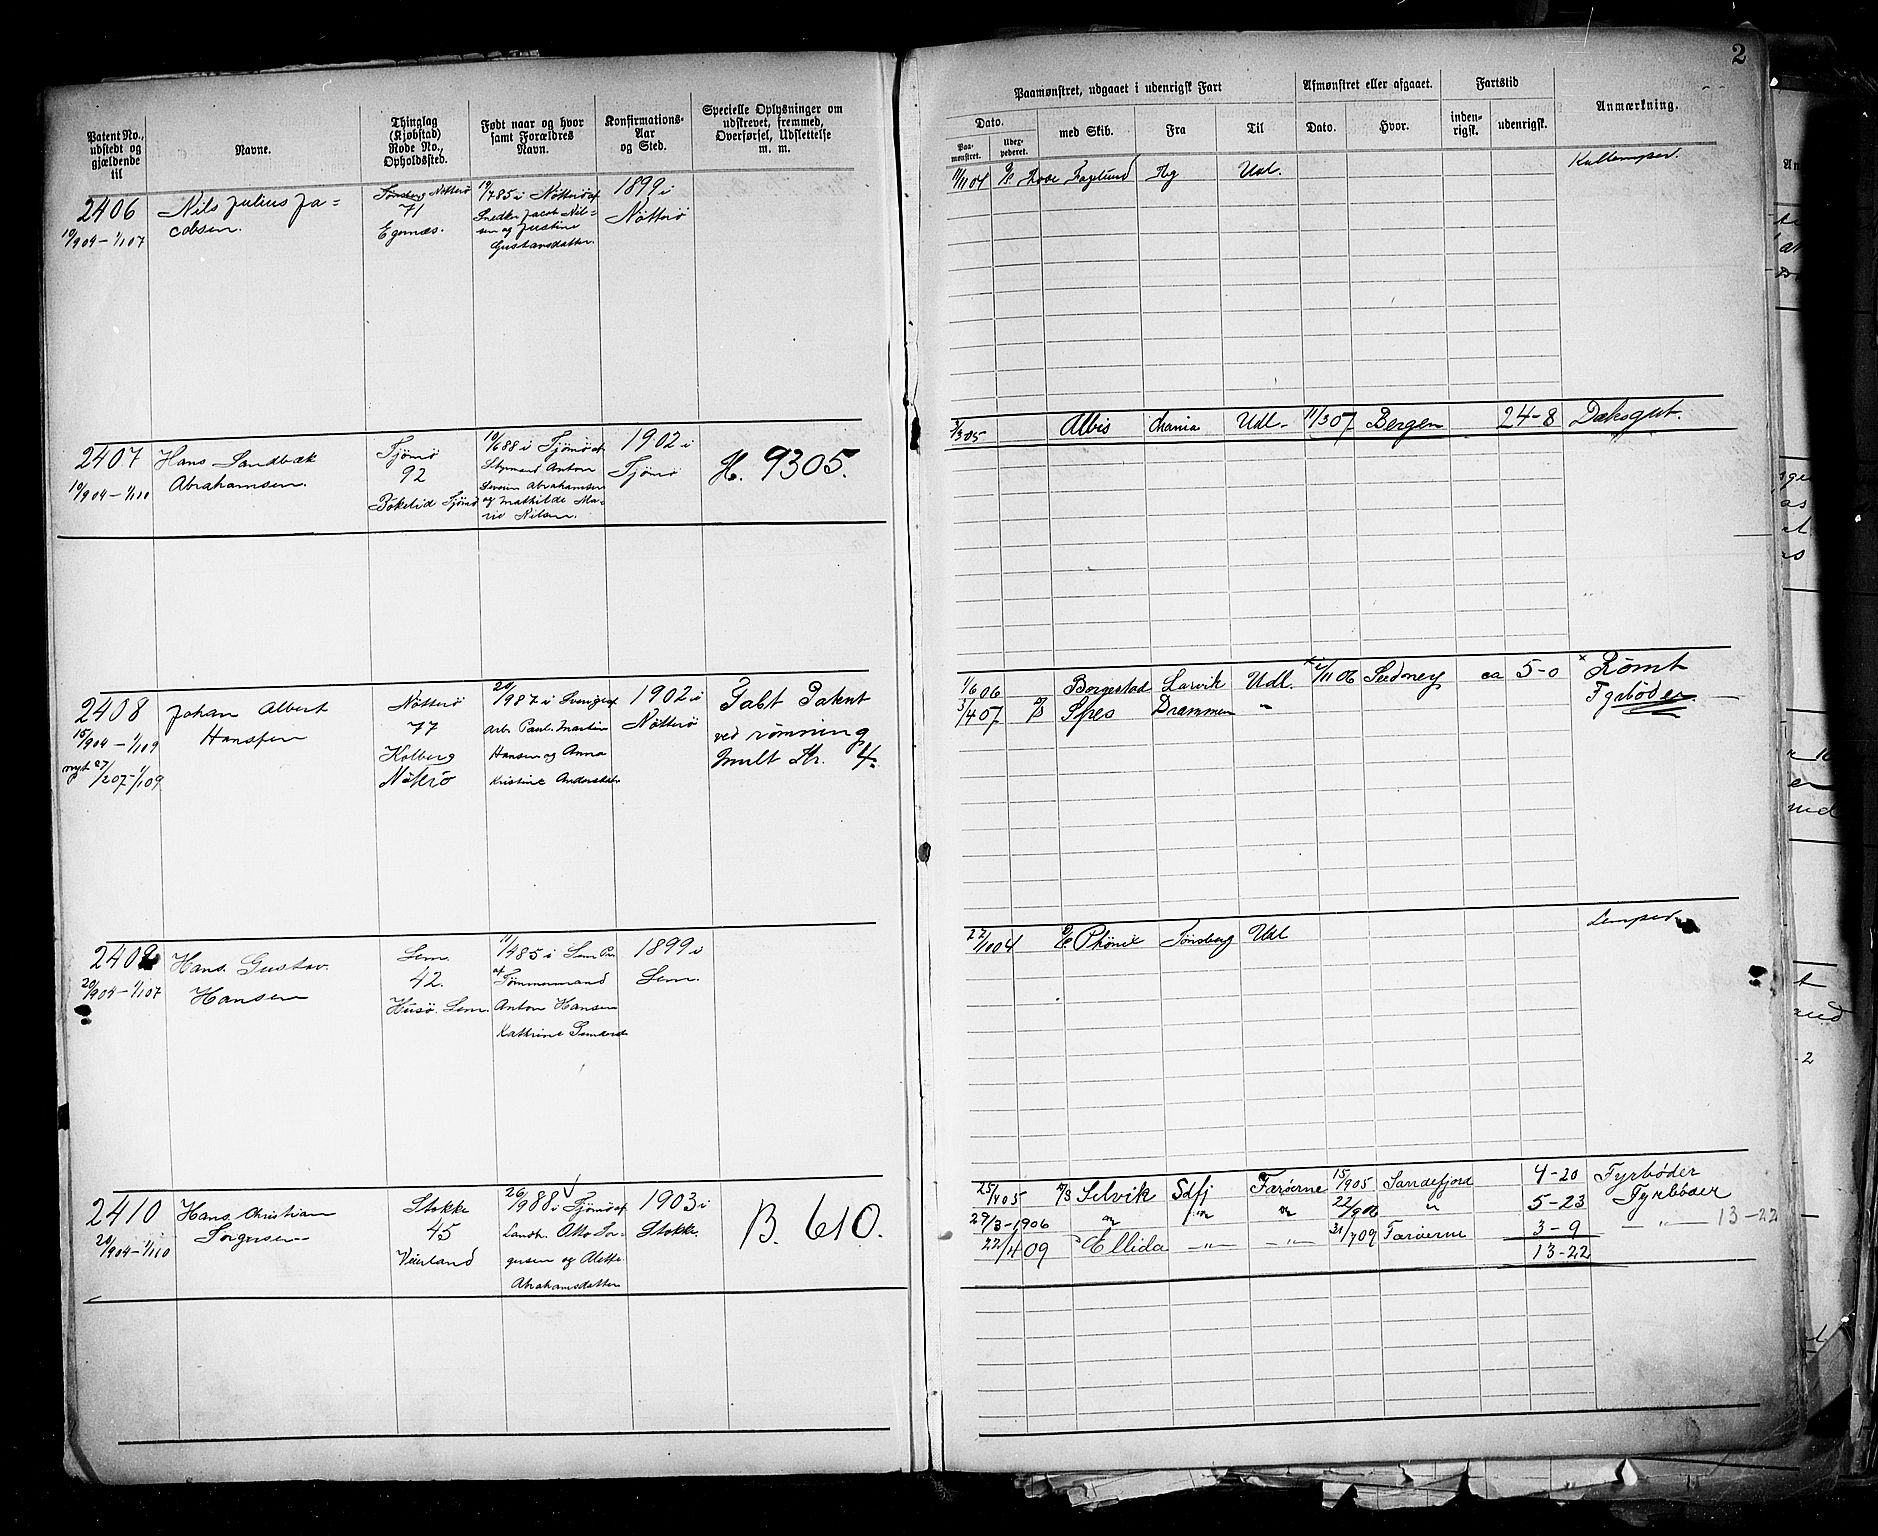 2
Patent No., udstedt og gjældende til
Navne.
Thinglag (Kjøbstad) Rode No., Opholdssted.
Født naar og hvor samt Forældres Navn.
Konfirmations-Aar og Sted.
Specielle Oplysninger om udskrevet, fremmed, Overførsel, Udslettelse m. m.
Paamønstret, udgaaet i udenrigsk Fart
Dato.
Paa-mønstret.
Udex-pederet.
med Skib.
Fra
Til
Afmønstret eller afgaaet.
Dato.
Hvor.
Fartstid
inden-rigsk.
udenrigsk.
Anmærkning.
2406
10/9 04 – 1/1 07
Nils Julius Ja=
cobsen.
Nøtterø
71
Egernæs.
19/7 85 i Nøtterø af
Snedker Jacob Nil=
sen og Justine
Gustavsdatter.
1899 i
Nøtterø
11/11 04
Fagelund
Udl.
2407
10/9 04 – 1/1 10
Hans Sandbæk
Abrahamsen.
Tjømø
92
Tjømø
19/6 88 i Tjømø af
Styrmand Anton
Severin Abrahamsen
og Mathilde Ma=
rie Nilsen.
1902 i
Tjømø
H. 9305.
3/3 05
Albis
Chania
Udl.
11/3 07
Bergen
24-8
Dæksgut.
2408
15/9 04 – 1/1 09
nyt 27/2 07 – 1/1 09
Johan Albert
Hansen
Nøtterø
77
Kolberg
Nøtterø
20/9 87 i Sverige af
Arb. Paul Martin
Hansen og Anna
Kristine Andersdatr
1902 i
Nøtterø
Tabt Patent
ved rømning
Mult Kr. 4.
1/6 06
Borgestad
Larvik
Udl.
1/11 06
Sidney
ca 5-0
x Rømt
3/4 07
D/S Spes
Drammen
"
Fyrbøder
2409
20/9 04 – 1/1 07
Hans Gustav
Hansen
Sem.
42.
Husø. Sem.
11/4 85 i Sem
af Tømmermand
Anton Hansen
Kathrine
1899 i
Sem.
22/10 04
Phønix
Tønsberg
Udl
2410
20/9 04 – 1/1 10
Hans Christian
Jørgensen
Stokke
45
Veierland
26/9 88 i Tjømø af
Landh. Otto Jør=
gensen og Alette
Abrahamsdatter
1903 i
Stokke.
B. 610.
25/4 05
D/S Selvik
Sdfj
Færøerne
15/9 05
Sandefjord
4-20
Fyrbøder
29/3-1906
"
"
"
22/9 06
"
5-23
Fyrbøder
22/4 09
" Ellida
—"—
—"—
31/7 09
Færøerne
3-9
—"—
13-22
13-22